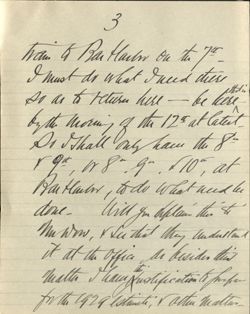 3
train to Bar Harbor on the 7th.
I must do what I need there
so as to return here — be here,
by the morning of the 12th at latest
So I shall only have the 8th
& 9th, or 8th. 9th. & 10th, at
Bar Harbor, to do what need be
done. Will you explain this to
& see that they understand
it at the office. As besides this
matter I have the justification to prepare
for the 1929 Estimate, & other matters